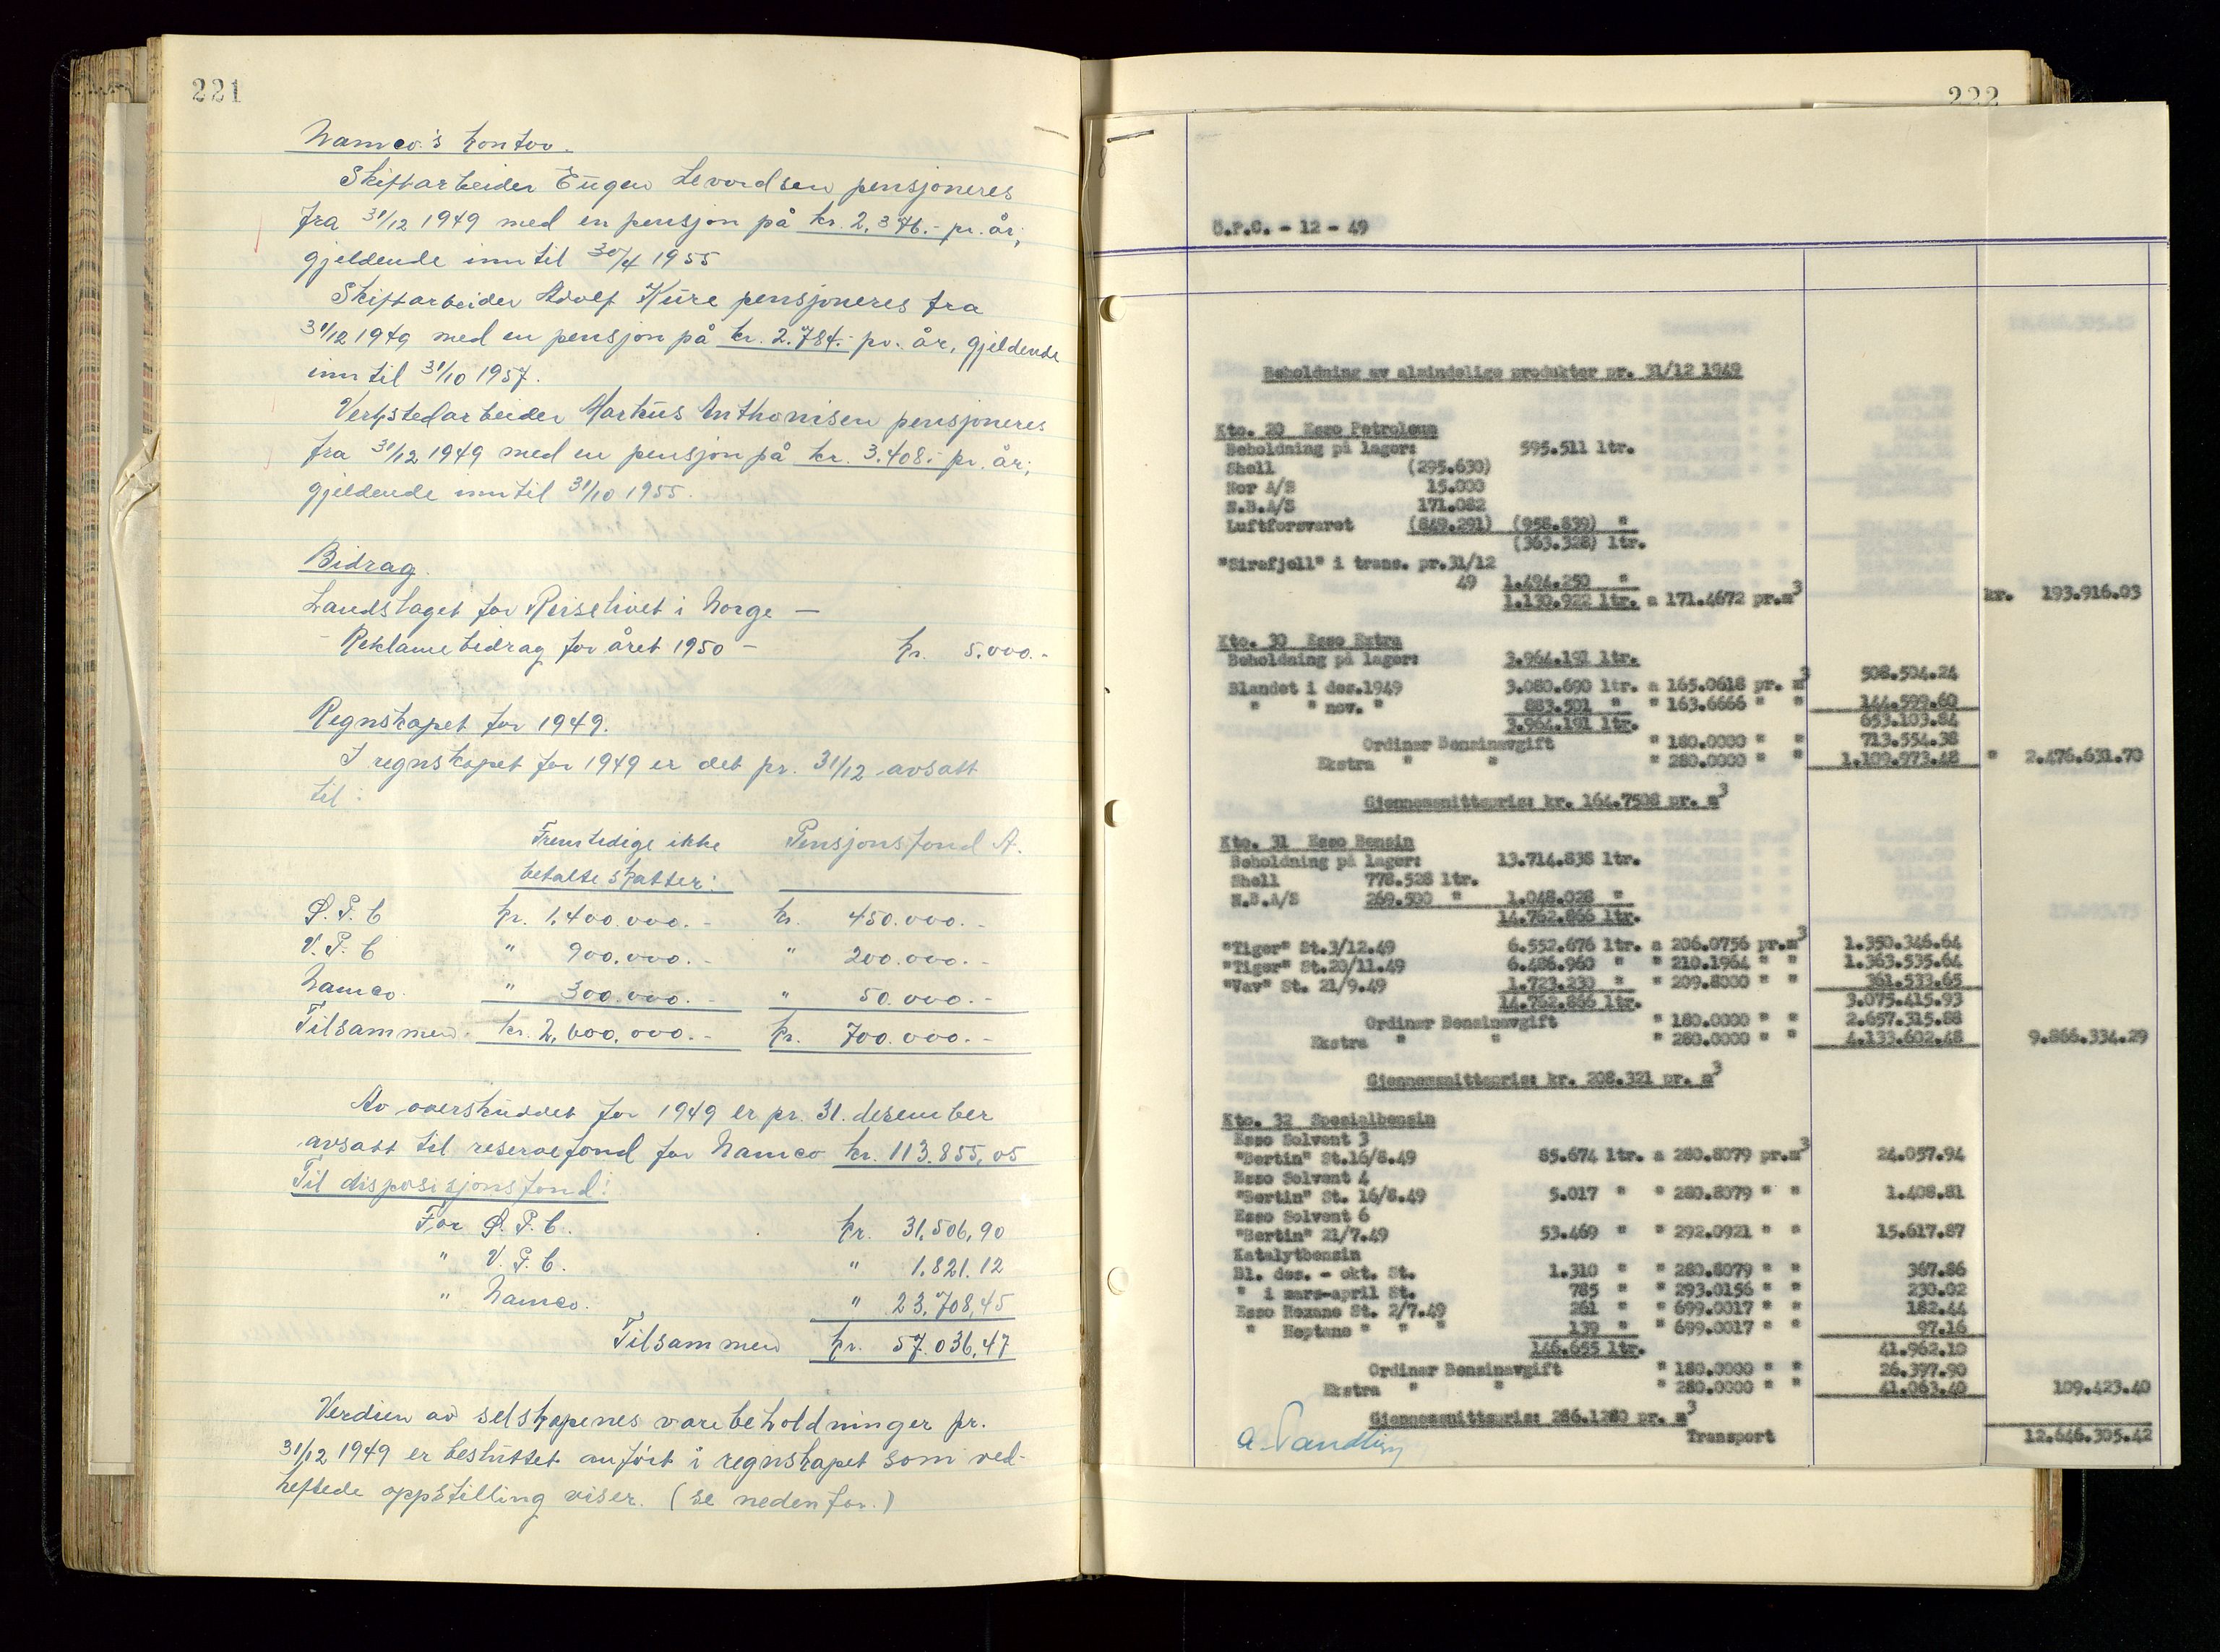 221
Namco's kontor.
Skiftarbeider Eugen Levordsen pensjoneres
fra 31/12 1949 med en pensjon på kr. 2.376.- pr. år;
gjeldende inntil 30/4 1955
Skiftarbeider Adolf Kure pensjoneres fra
31/12 1949 med en pensjon på kr. 2.784.- pr. år, gjeldende
inntil 31/10 1957.
Verkstedarbeider Markus Anthonisen pensjoneres
fra 31/12 1949 med en pensjon på kr. 3.408.- pr. år;
gjeldende inntil 31/10 1955.
Bidrag.
Landslaget for Reiselivet i Norge —
- Reklamebidrag for året 1950 — kr. 5.000.-
Regnskapet for 1949.
I regnskapet for 1949 er det pr. 31/12 avsatt
til:
Fremtidige ikke Pensjonsfond A.
betalte skatter:
Ø.P.C kr. 1.400.000.- kr. 450.000.-
V.P.C " 900.000.- " 200.000.-
Namco. " 300.000.- " 50.000.-
Tilsammen. kr. 2.600.000.- kr. 700.000.-
Av overskuddet for 1949 er pr. 31. desember
avsatt til reservefond for Namco kr. 113.855,05
Til disposisjonsfond:
For Ø.P.C. kr. 31.506,90
" V.P.C. " 1.821.12
" Namco. " 23.708,45
Tilsammen kr. 57.036,47
Verdien av selskapenes varebeholdninger pr.
31/12 1949 er besluttet anført i regnskapet som ved-
heftede oppstilling viser. (se nedenfor.)
222
Ö.P.C. - 12 - 49
Beholdning av almindelige produkter pr. 31/12 1949
Kto. 20 Esso Petroleum
Beholdning på lager: 595.511 ltr.
Shell (295.630)
Nor A/S 15.000
N.B.A/S 171.082
Luftforsvaret (849.291) (958.839) "
(363.328) ltr.
"Sirefjell" i trans. pr.31/12
49 1.494.250 "
1.130.922 ltr. a 171.4672 pr.m3 kr. 193.916.03
Kto. 30 Esso Extra
Beholdning på lager: 3.964.191 ltr.
Blandet i des.1949 3.080.690 ltr. a 165.0618 pr. m3 508.504.24
" " nov. " 883.501 " " 163.6666 " " 144.599.60
3.964.191 ltr. 653.103.84
Ordinær Bensinavgift " 180.0000 " " 713.554.38
Ekstra " " " 280.0000 " " 1.109.973.48 " 2.476.631.70
Gjennomsnittspris: kr. 164.7508 pr. m3
Kto. 31 Esso Bensin
Beholdning på lager: 13.714.838 ltr.
Shell 778.528 ltr.
N.B.A/S 269.500 " 1.048.028 "
14.762.866 ltr.
"Tiger" St.3/12.49 6.552.676 ltr. a 206.0756 pr.m3 1.350.346.64
"Tiger" St.20/11.49 6.486.960 " " 210.1964 " " 1.363.535.64
"Vav" St. 21/9.49 1.723.230 " " 209.8000 " " 361.533.65
14.762.866 ltr. 3.075.415.93
Ordinær Bensinavgift " 180.0000 " " 2.657.315.88
Ekstra " " " 280.0000 " " 4.133.602.48 9.866.334.29
Gjennomsnittspris: kr. 208.321 pr. m3
Kto. 32 Spesialbensin
Esso Solvent 3
"Bertin" St.16/8.49 85.674 ltr. a 280.8079 pr.m3 24.057.94
Esso Solvent 4
"Bertin" St. 16/8.49 5.017 " " 280.8079 " " 1.408.81
Esso Solvent 6
"Bertin" 21/7.49 53.469 " " 292.0921 " " 15.617.87
Katalytbensin
Bl. des. - okt. St. 1.310 " " 280.8079 " " 367.86
" i mars-april St. 785 " " 293.0156 " " 230.02
Esso Hexane St. 2/7.49 261 " " 699.0017 " " 182.44
" Heptane " " " 139 " " 699.0017 " " 97.16
146.655 ltr. 41.962.10
Ordinær Bensinavgift " 180.0000 " " 26.397.90
Ekstra " " " 280.0000 " " 41.063.40 109.423.40
Gjennomsnittspris: 286.1280 pr. m3
Transport 12.646.305.42